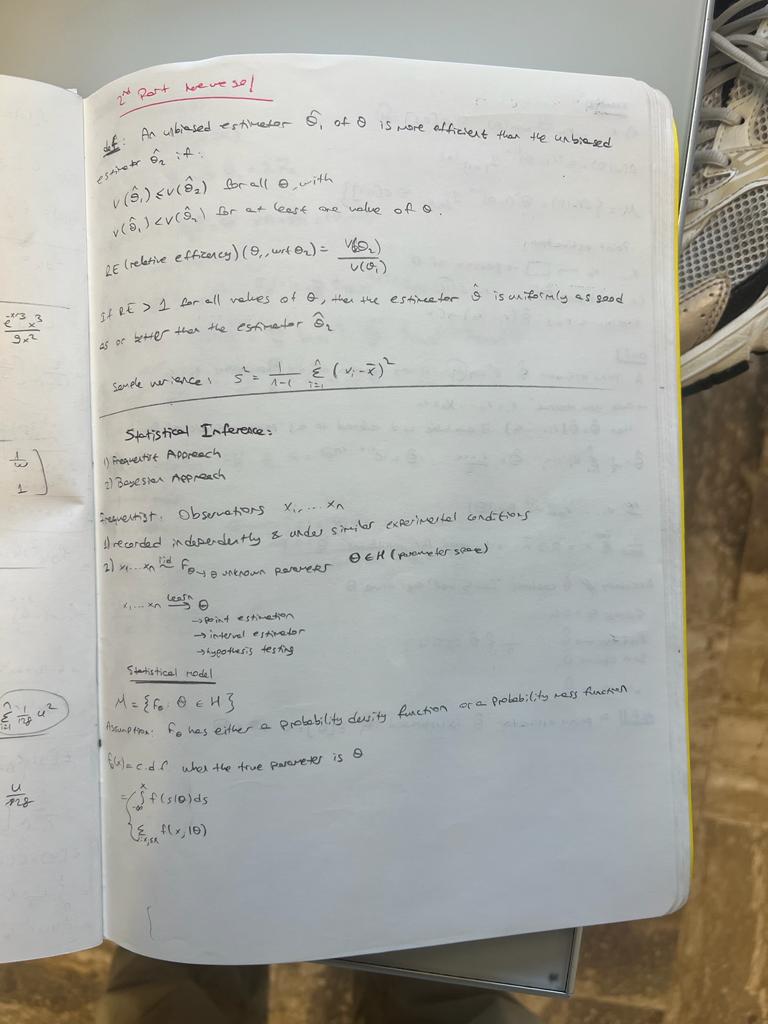 e^-x/3 x^3
9x^2
1/w
1
n Σ i=1 1/128 u^2
u
2nd Part
def: An unbiased estimator θ̂₁ of θ is more efficient than the unbiased
estimator θ̂₂ if:
V(θ̂₁) ≤ V(θ̂₂) for all θ, with
V(θ̂₁) < V(θ̂₂) for at least one value of θ.
RE (relative efficency) (θ₁, wrt θ₂) = V(θ₂) / V(θ₁)
If RE > 1 for all values of θ, then the estimator θ̂ is uniformly as good
as or better than the estimator θ̂₂
Sample variance: S² = 1/(n-1) Σ_{i=1}^{n} (vᵢ - x̄)²
Statistical Inference:
1) Frequentist Approach
2) Bayesian Approach
Frequentist: Observations x₁, ... xn
1) recorded independently & under similar experimental conditions
2) x₁... xn iid ~ Fθ → θ unknown parameter θ ∈ H (parameter space)
x₁... xn learn → θ
→ point estimation
→ interval estimator
→ hypothesis testing
Statistical model
M = {Fθ: θ ∈ H}
Assumption: Fθ has either a probability density function or a probability mass function
Fθ(x) = c.d.f. when the true parameter is θ
= { ∫_{-∞}^{x} f(s|θ) ds
Σ_{i:xᵢ≤x} f(xᵢ|θ)